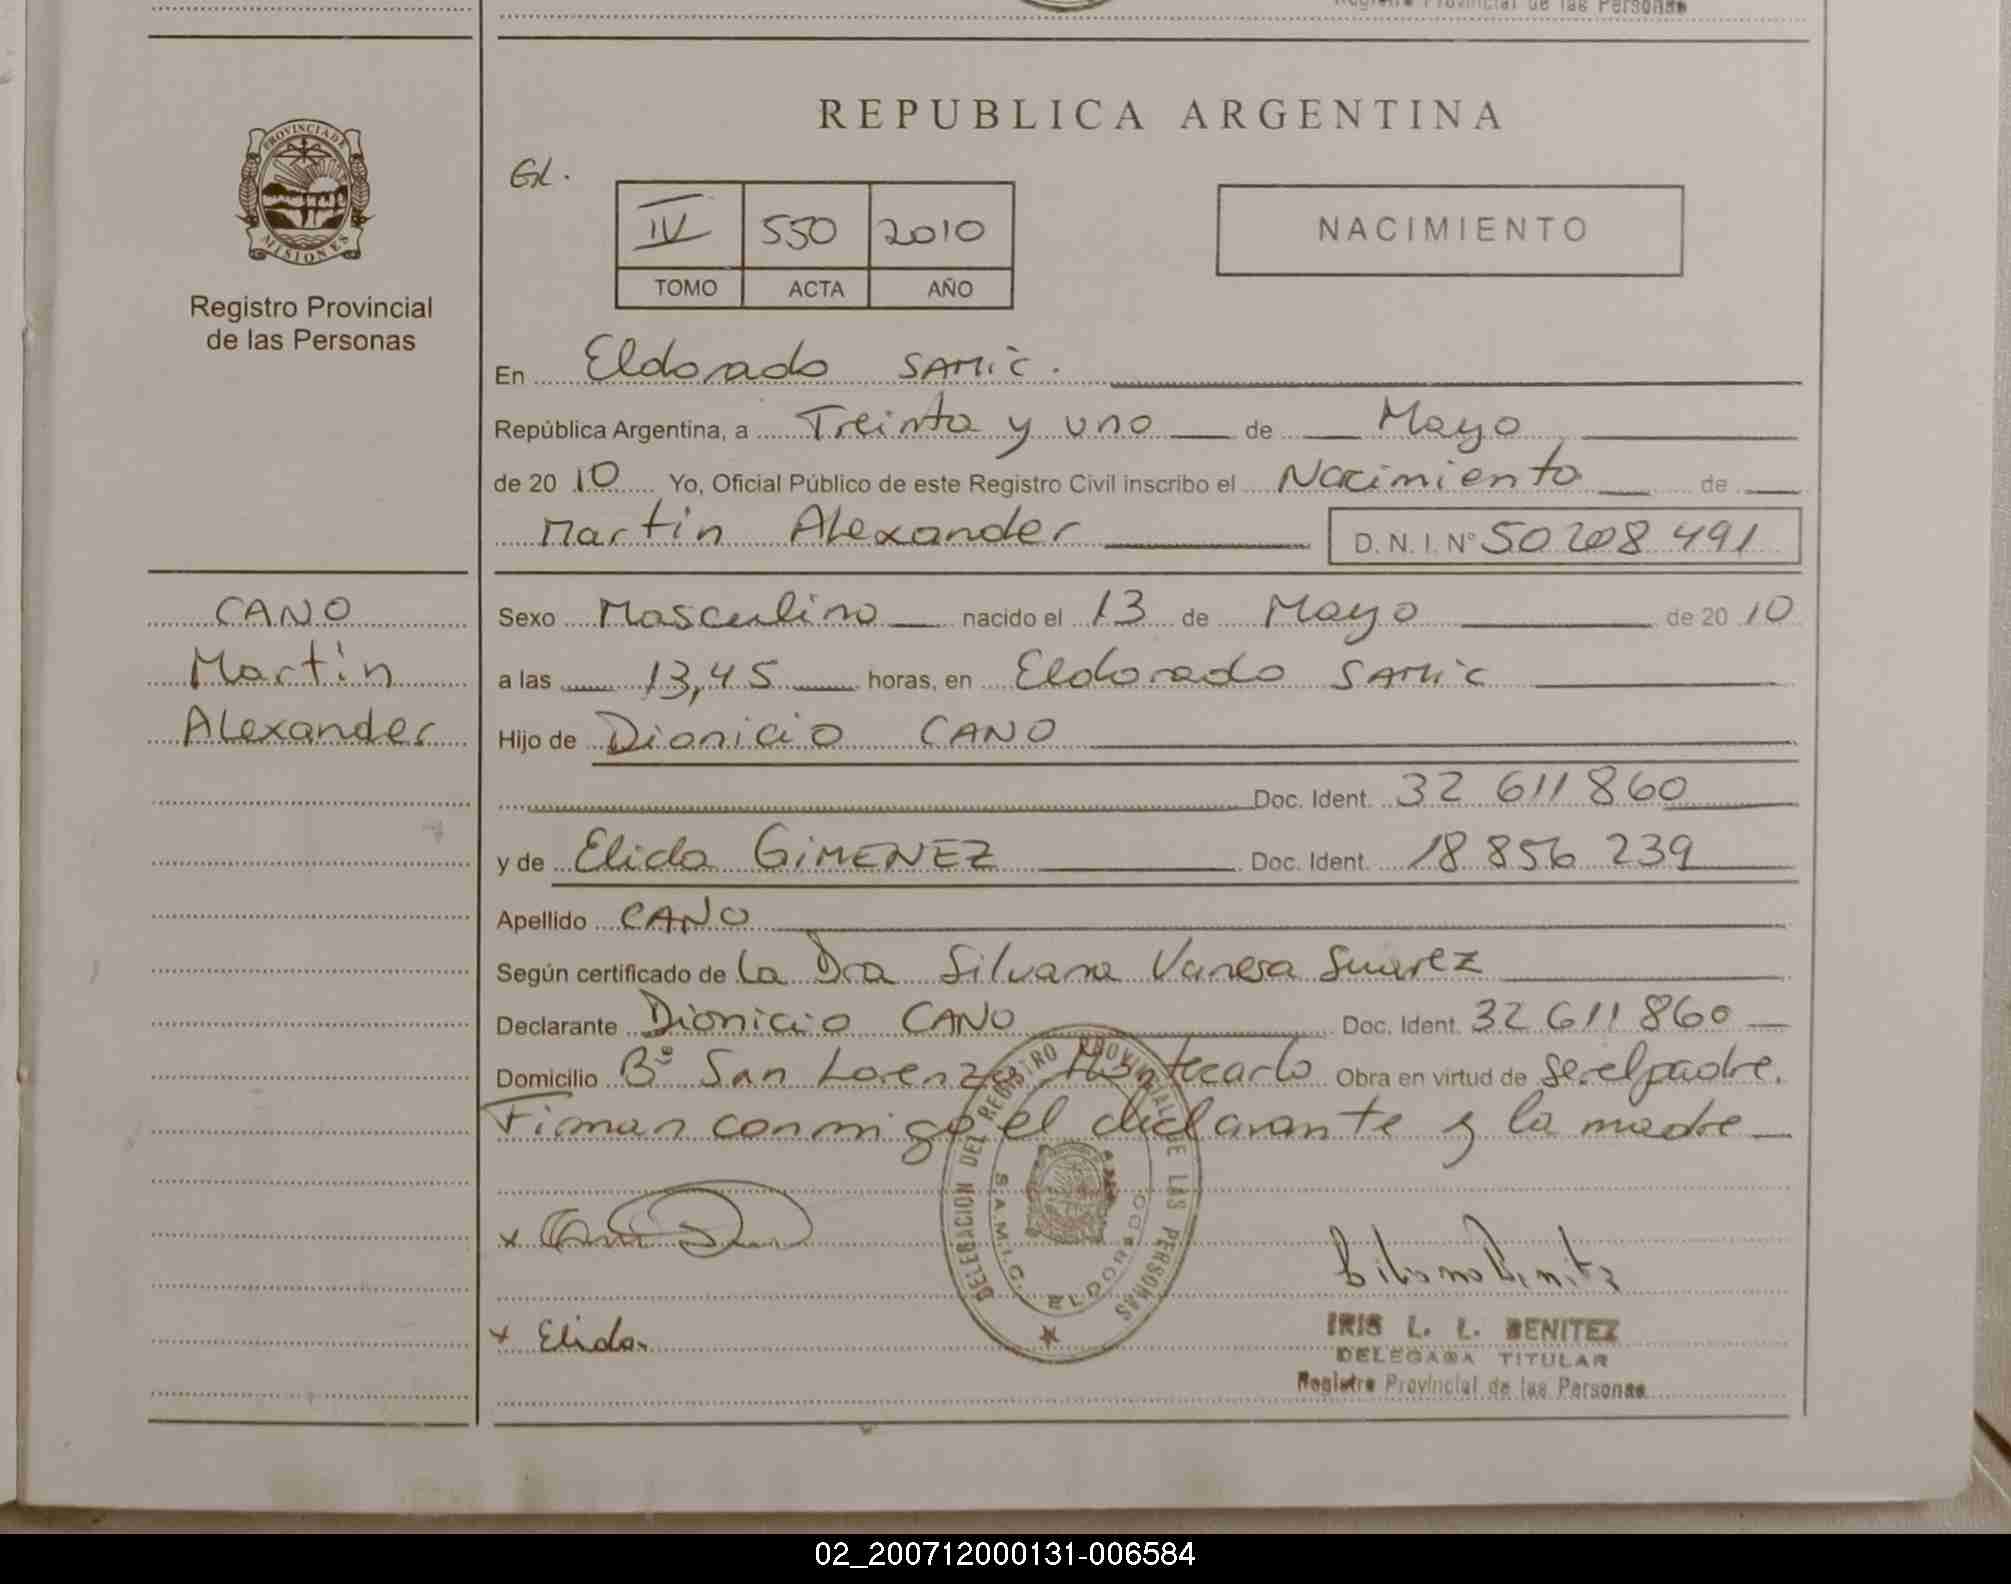 Registro Provincial de las Personas
REPUBLICA ARGENTINA
PROVINCIA DE
MISIONES
Registro Provincial
de las Personas
GL.
IV 550 2010
TOMO ACTA AÑO
NACIMIENTO
En Eldorado SAMIC.
República Argentina, a Treinta y uno de Mayo
de 2010 Yo, Oficial Público de este Registro Civil inscribo el Nacimiento de
Martin Alexander D. N. I. Nº 50 208 491
CANO
Martin
Alexander
Sexo Masculino nacido el 13 de Mayo de 2010
a las 13,45 horas, en Eldorado SAMIC
Hijo de Dionicio CANO
Doc. Ident. 32 611 860
y de Elida GIMENEZ Doc. Ident. 18 856 239
Apellido CANO
Según certificado de La Dra Silvana Vanesa Suarez
Declarante Dionicio CANO Doc. Ident. 32 611 860
Domicilio Bº San Lorenzo Montecarlo Obra en virtud de ser el padre.
Firman conmigo el declarante y la madre
DELEGACION DEL REGISTRO PROVINCIAL DE LAS PERSONAS
S.A.M.I.C. ELDORADO
x
x Elida
IRIS L. L. BENITEZ
DELEGADA TITULAR
Registro Provincial de las Personas
02_200712000131-006584